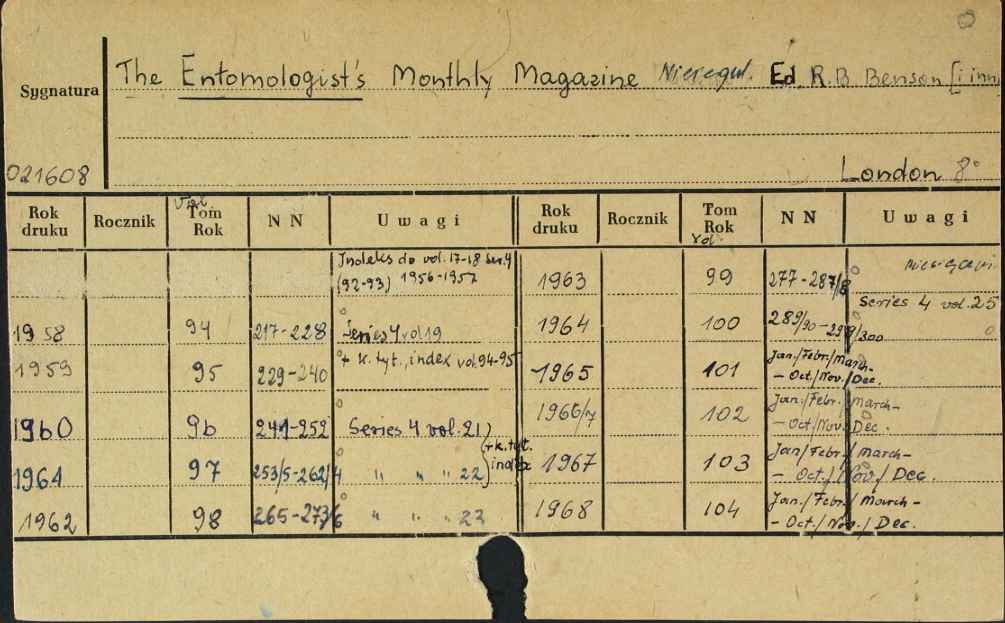 The Entomologist's Monthly Magazine Nieregul. Ed. R.B. Benson [i inn
Sygnatura
021608
London 8°
Rok druku Rocznik Vol Tom Rok NN Uwagi Rok druku Rocznik Tom Rok Vol NN Uwagi
Indeks do vol. 17-18 Ser. 4
(92-93) 1956-1957
1963 99 277-287/8
Series 4 vol. 25
1958 94 217-228 Series 4 vol 19
1964 100 289/90-298/300
1959 95 229-240 + k. tyt., index vol. 94-95
1965 101 Jan./Febr./March-
- Oct./Nov./Dec.
1960 96 241-252 Series 4 vol. 21
1966/7 102 Jan./Febr./March-
- Oct./Nov./Dec.
+ k. tyt. index
1964 97 253/5-262/4 " " " 22
1967 103 Jan/Febr./March-
- Oct./Nov/Dec.
1962 98 265-273/6 " " " 23
1968 104 Jan./Febr./March-
- Oct./Nov./Dec.